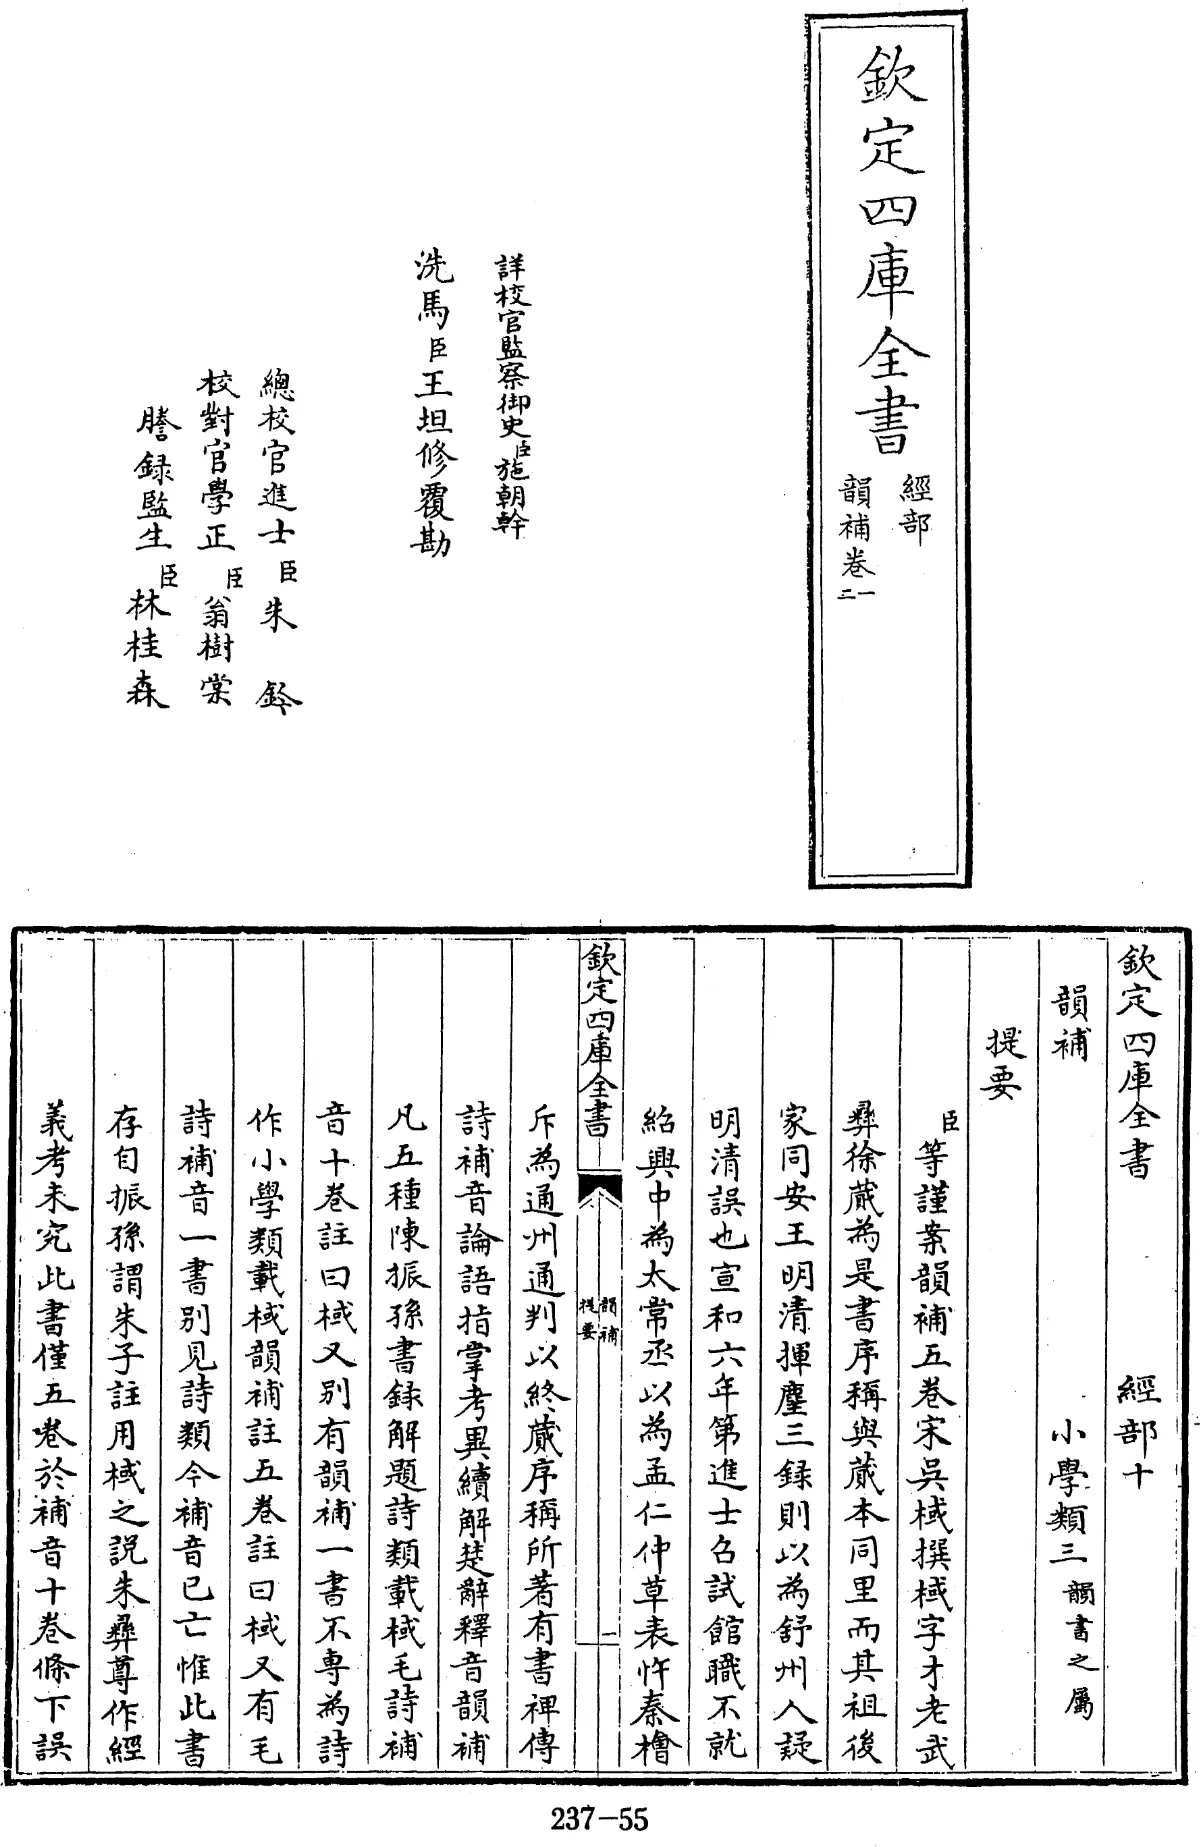 欽定四庫全書
經部
韻補卷一
二
詳校官監察御史臣施朝幹
洗馬臣王坦修覆勘
總校官進士臣朱鈐
校對官學正臣翁樹棠
謄録監生臣林桂森
欽定四庫全書 經部十
韻補 小學類三韻書之屬
提要
臣等謹案韻補五卷宋吳棫撰棫字才老武
彛徐蕆為是書序稱與蕆本同里而其祖後
家同安王明清揮麈三録則以為舒州人疑
明清誤也宣和六年第進士召試館職不就
紹興中為太常丞以為孟仁仲草表忤秦檜
欽定四庫全書
韻補
提要
一
斥為通州通判以終蕆序稱所著有書裨傳
詩補音論語指掌考異續解楚辭釋音韻補
凡五種陳振孫書録解題詩類載棫毛詩補
音十卷註曰棫又别有韻補一書不專為詩
作小學類載棫韻補註五卷註曰棫又有毛
詩補音一書别見詩類今補音已亡惟此書
存自振孫謂朱子註用棫之説朱彛尊作經
義考未究此書僅五卷於補音十卷條下誤
237-55